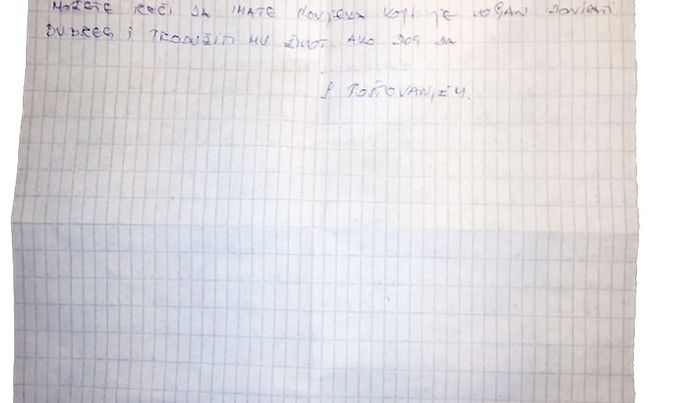 MOŽETE REĆI DA IMATE ČOVJEKA KOJI JE VOLJAN DONIRATI
BUBREG I PRODUŽITI MU ŽIVOT AKO BOG DA
S POŠTOVANJEM.